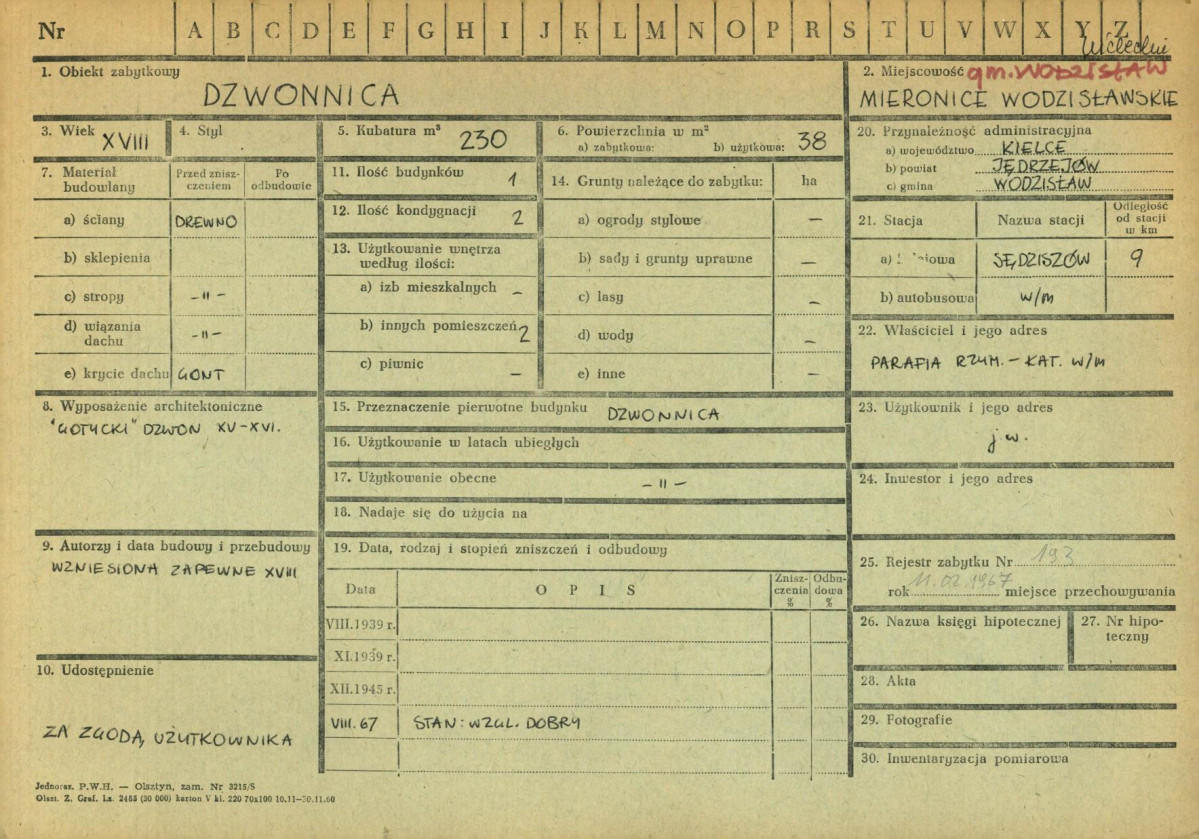 Nr A B C D E F G H I J K L M N O P R S T U V W X Y Z
1. Obiekt zabytkowy
DZWONNICA
2. Miejscowość gm. WODZISŁAW
MIERONICE WODZISŁAWSKIE
3. Wiek XVIII
4. Styl
5. Kubatura m³ 230
6. Powierzchnia w m²
a) zabytkowa: b) użytkowa: 38
20. Przynależność administracyjna
a) województwo KIELCE
b) powiat JĘDRZEJÓW
c) gmina WODZISŁAW
7. Materiał budowlany
Przed zniszczeniem
Po odbudowie
a) ściany DREWNO
b) sklepienia
c) stropy -"-
d) wiązania dachu -"-
e) krycie dachu GONT
11. Ilość budynków 1
12. Ilość kondygnacji 2
13. Użytkowanie wnętrza
według ilości:
a) izb mieszkalnych –
b) innych pomieszczeń 2
c) piwnic –
14. Grunty należące do zabytku: ha
a) ogrody stylowe –
b) sady i grunty uprawne –
c) lasy –
d) wody –
e) inne –
21. Stacja
Nazwa stacji
Odległość
od stacji
w km
SĘDZISZÓW 9
b) autobusowa w/m
22. Właściciel i jego adres
PARAFIA RZYM. – KAT. w/m
8. Wyposażenie architektoniczne
"GOTYCKI" DZWON XV-XVI.
15. Przeznaczenie pierwotne budynku DZWONNICA
16. Użytkowanie w latach ubiegłych
17. Użytkowanie obecne -"-
18. Nadaje się do użycia na
23. Użytkownik i jego adres
j.w.
24. Inwestor i jego adres
9. Autorzy i data budowy i przebudowy
WZNIESIONA ZAPEWNE XVIII
19. Data, rodzaj i stopień zniszczeń i odbudowy
Data
O P I S
Zniszczenia
%
Odbudowa
%
VIII.1939 r.
XI.1939 r.
XII.1945 r.
VIII.67 STAN: WZGL. DOBRY
25. Rejestr zabytku Nr 193
rok 11.02.1967 miejsce przechowywania
26. Nazwa księgi hipotecznej
27. Nr hipoteczny
28. Akta
29. Fotografie
30. Inwentaryzacja pomiarowa
10. Udostępnienie
ZA ZGODĄ UŻYTKOWNIKA
Jednoraz. P.W.H. — Olsztyn, zam. Nr 3215/S
Olszt. Z. Graf. Lz. 2455 (30 000) karton V kl. 220 70x100 10.11—30.11.60